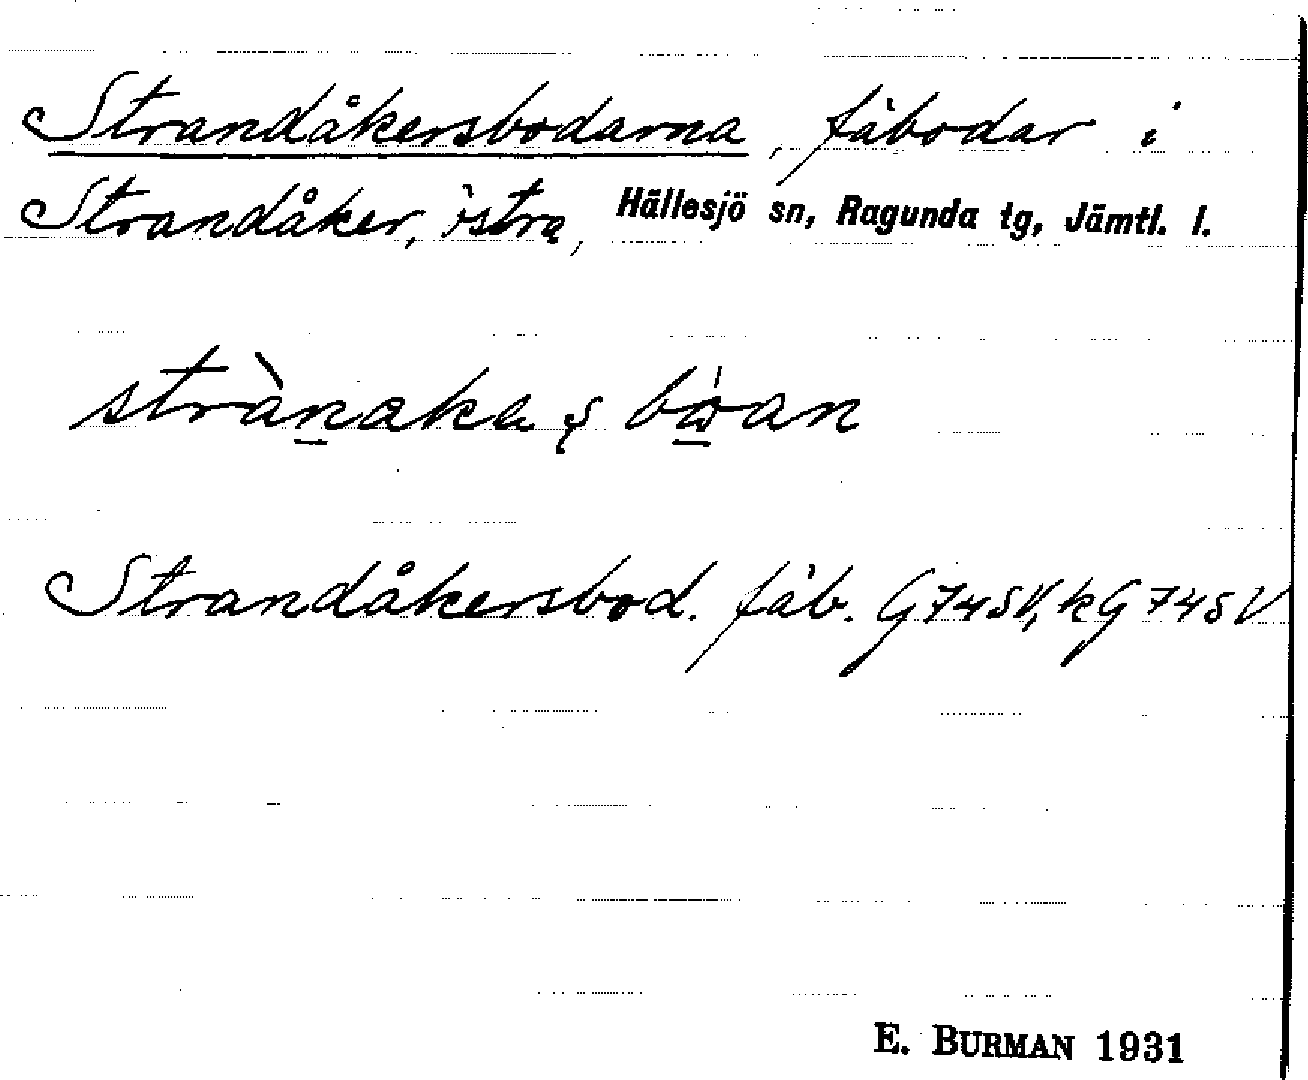 Strandåkersbodarna, fäbodar i
Strandåker, östra, Hällesjö sn, Ragunda tg, Jämtl. l.
Strandåkersbod. fäb. G74SV, kG74SV
E. BURMAN 1931